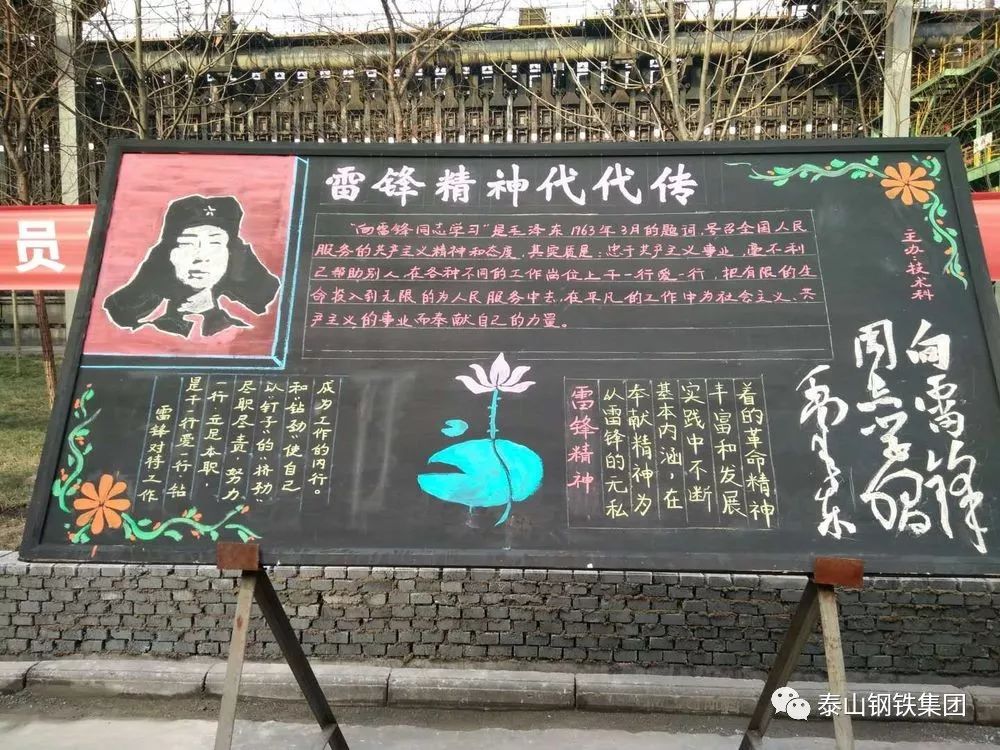 雷锋精神代代传
"向雷锋同志学习"是毛泽东1963年3月的题词,号召全国人民
服务的共产主义精神和态度,其实质是:忠于共产主义事业,毫不利
己帮助别人,在各种不同的工作岗位上干一行爱一行,把有限的生
命投入到无限的为人民服务中去,在平凡的工作中为社会主义、共
产主义的事业而奉献自己的力量。
主办:技术科
向雷锋
同志学习
毛泽东
雷锋对待工作
是干一行爱一行、钻
一行,立足本职,
尽职尽责,努力
以"钉子"的挤劲
和"钻劲"使自己
成为工作的内行。
雷锋精神
以雷锋的无私
奉献精神为
基本内涵,在
实践中不断
丰富和发展
着的革命精神
员
泰山钢铁集团